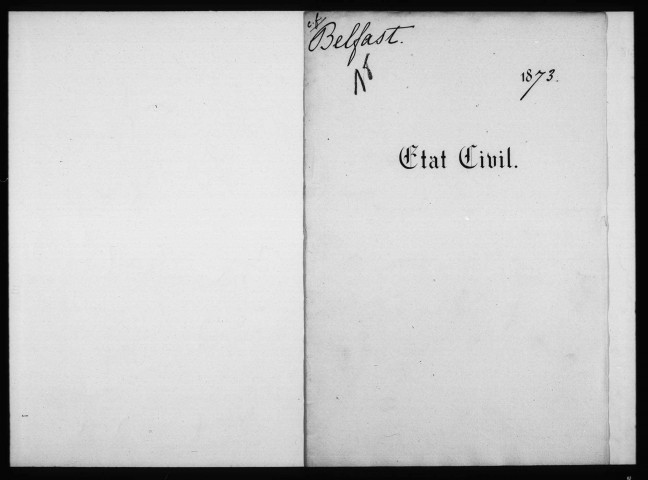 Belfast.
1873.
Etat Civil.